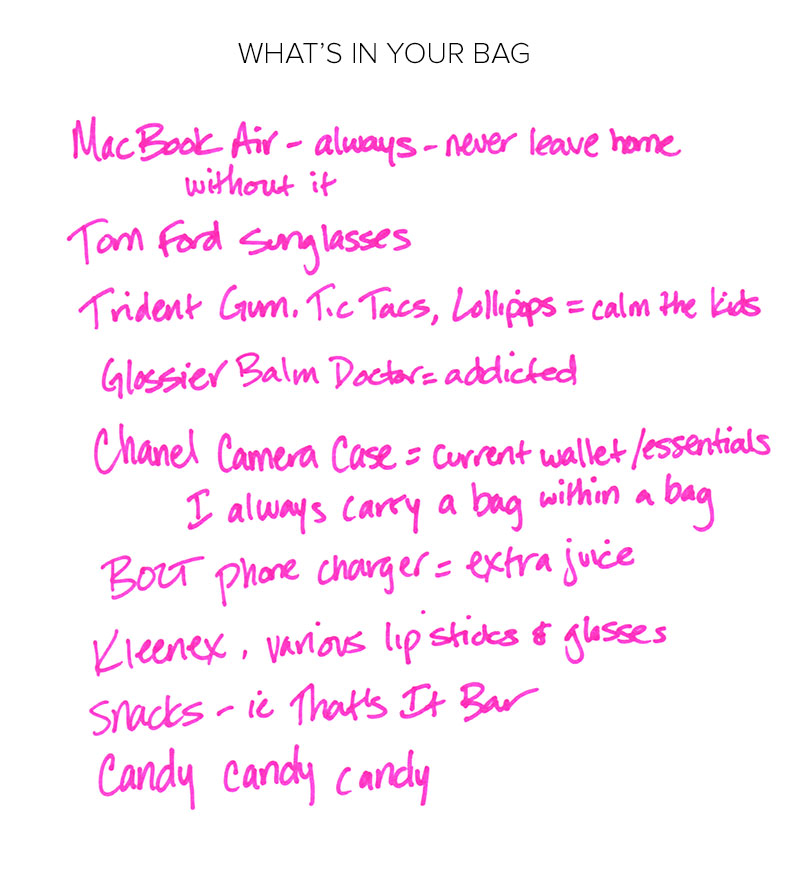 WHAT'S IN YOUR BAG
MacBook Air - always - never leave home
without it
Tom Ford sunglasses
Trident Gum. Tic Tacs, Lollipops = calm the kids
Glossier Balm Doctor = addicted
Chanel Camera Case = current wallet/essentials
I always carry a bag within a bag
BOLT phone charger = extra juice
Kleenex, various lipsticks & glosses
Snacks - ie That's It Bar
Candy candy candy